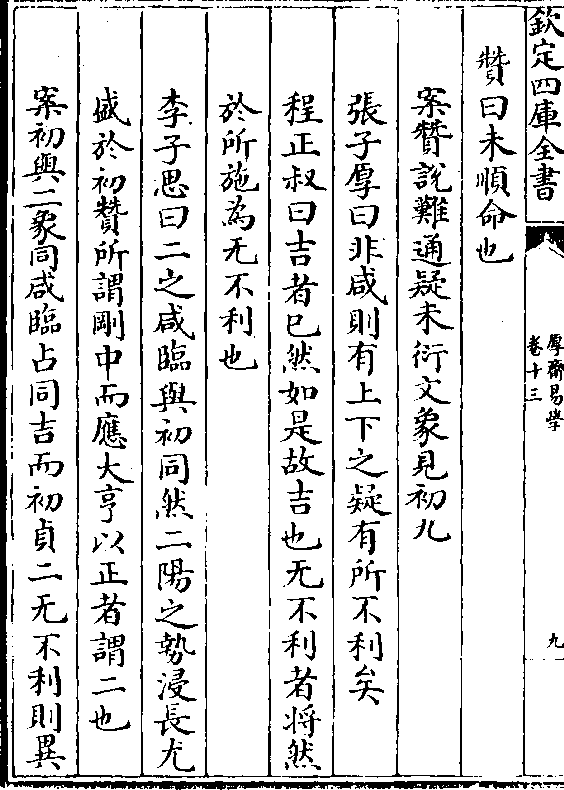 欽定四庫全書
厚齋易學
卷十三
九
賛曰未順命也
案賛說難通疑未衍文象見初九
張子厚曰非咸則有上下之疑有所不利矣
程正叔曰吉者已然如是故吉也无不利者將然
於所施為无不利也
李子思曰二之咸臨與初同然二陽之勢浸長尤
盛於初賛所謂剛中而應大亨以正者謂二也
案初與二象同咸臨占同吉而初貞二无不利則異